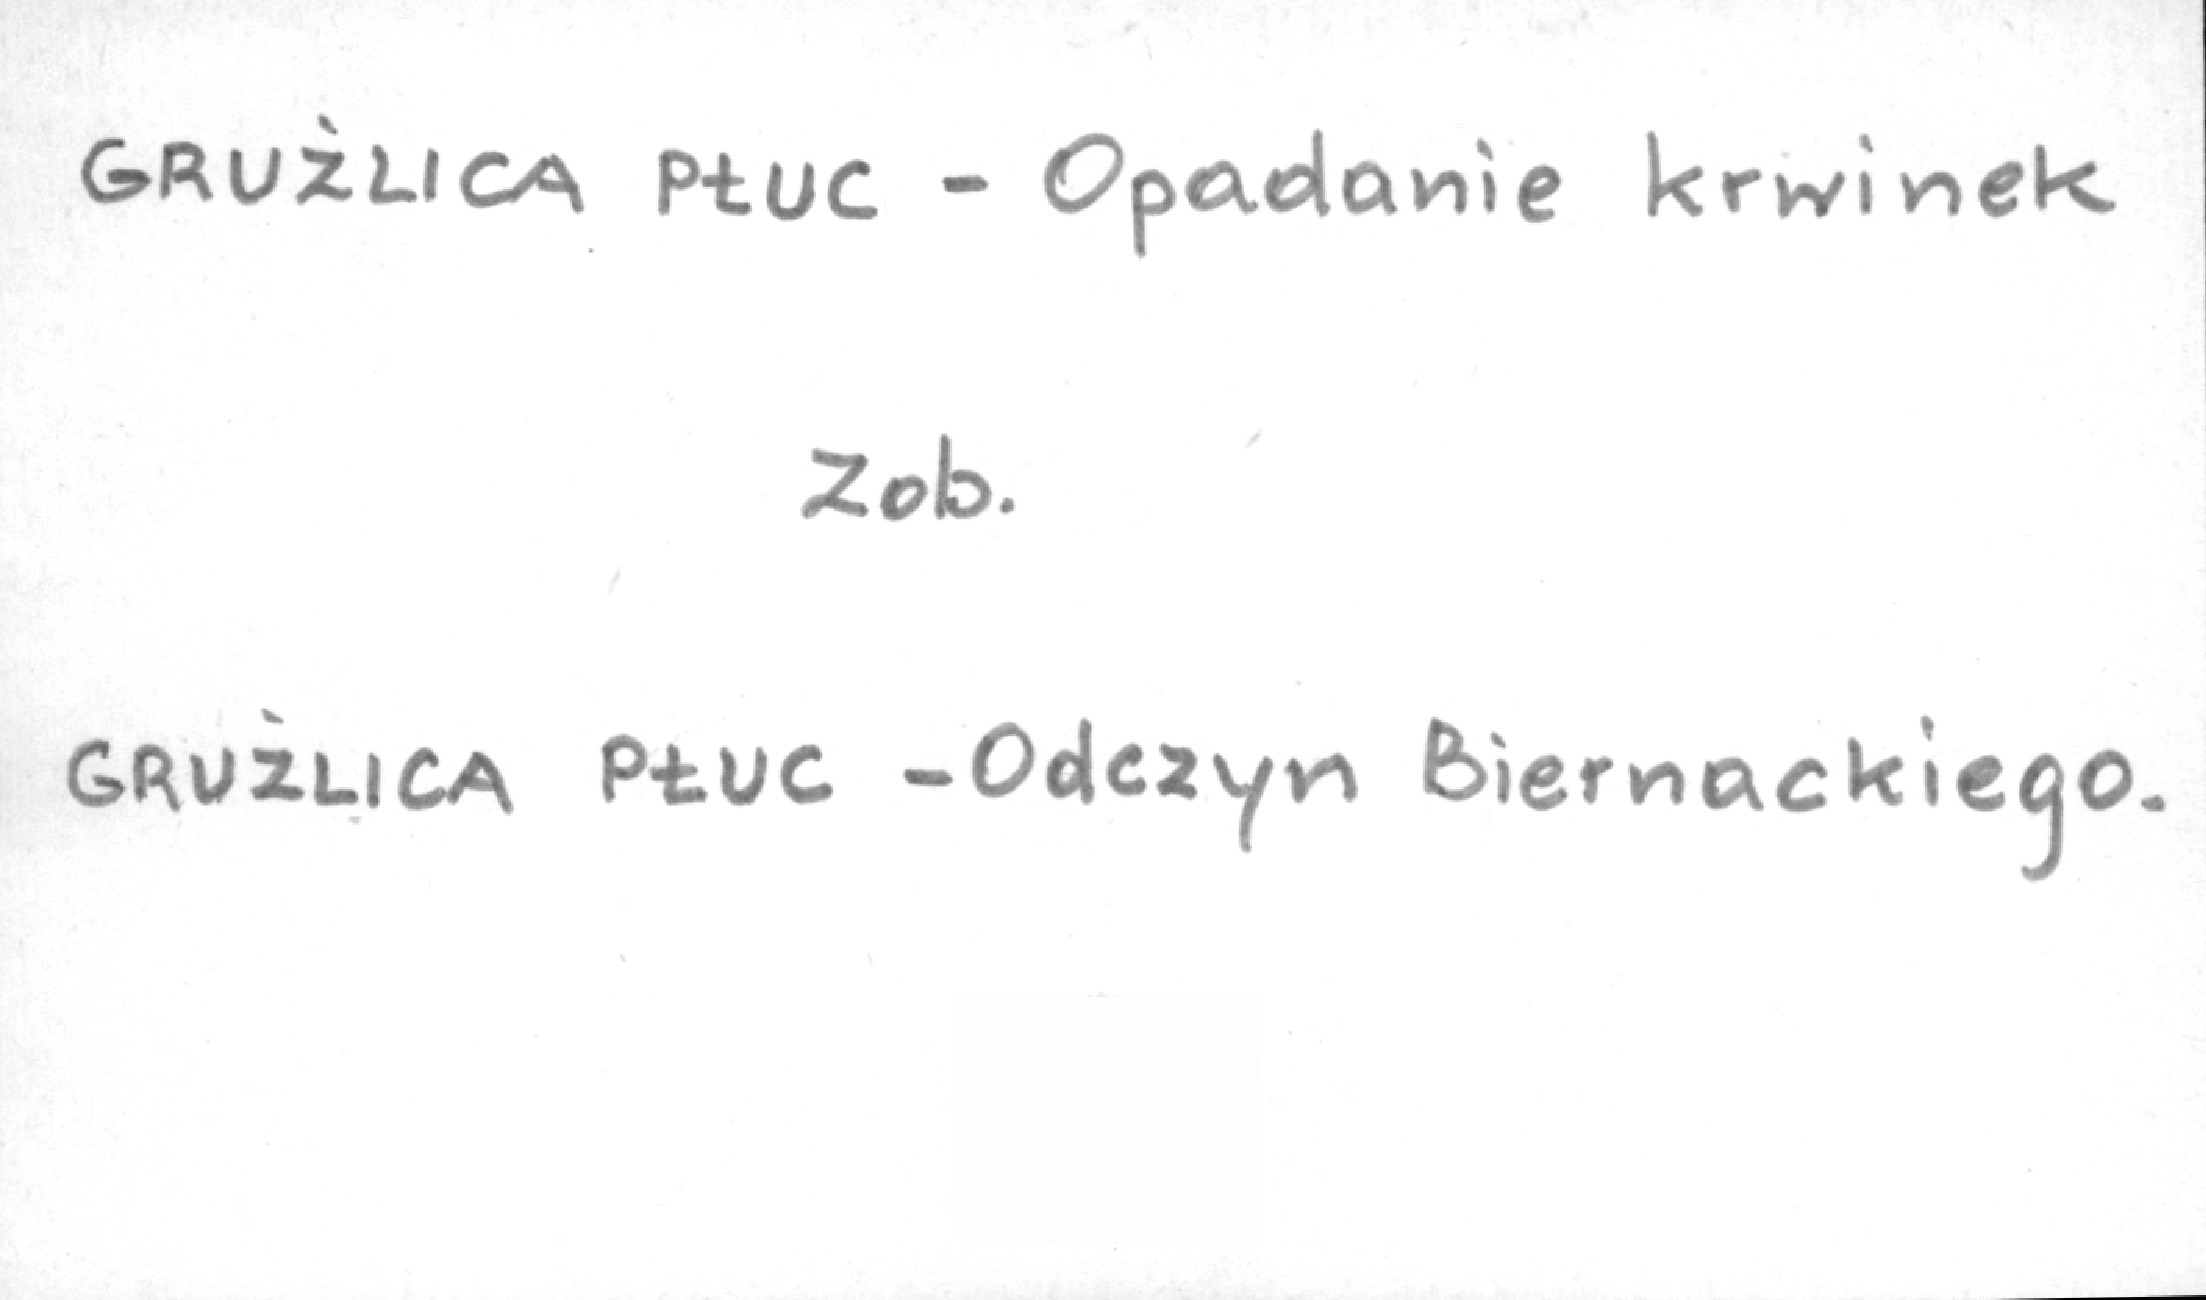 GRUŹLICA PŁUC - Opadanie krwinek
Zob.
GRUŹLICA PŁUC - Odczyn Biernackiego.